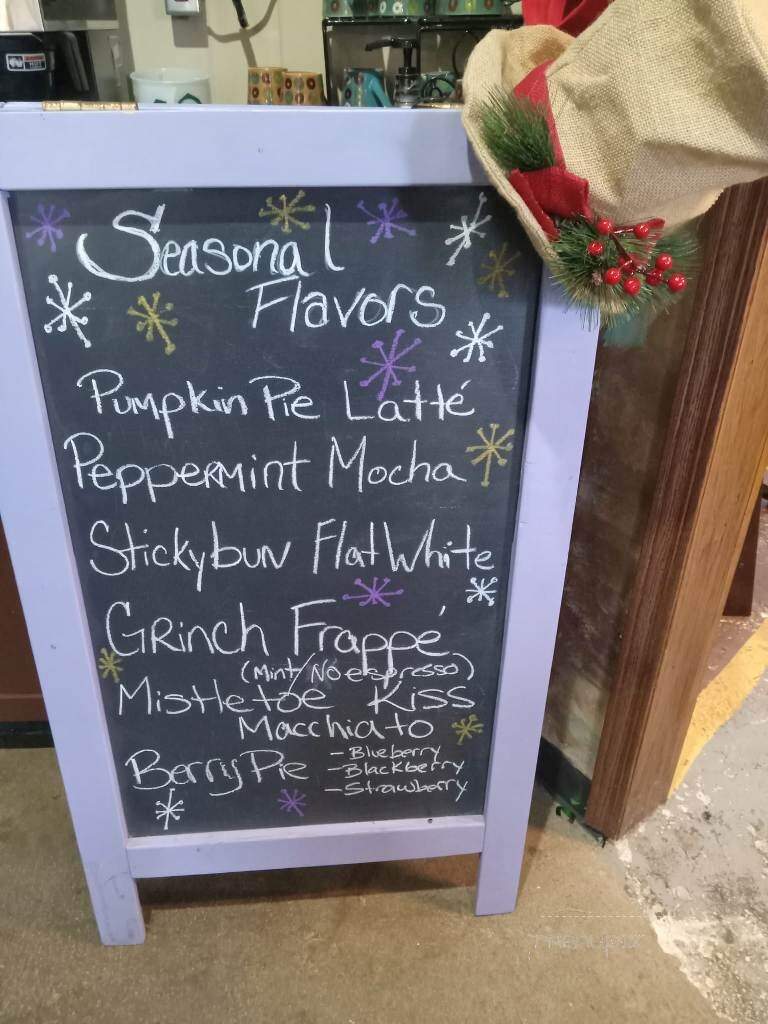 Seasonal
Flavors
Pumpkin Pie Latté
Peppermint Mocha
Stickybun Flat White
Grinch Frappé
(Mint/No espresso)
Mistletoe Kiss
Macchiato
Berry Pie
- Blueberry
- Blackberry
- Strawberry
menupix